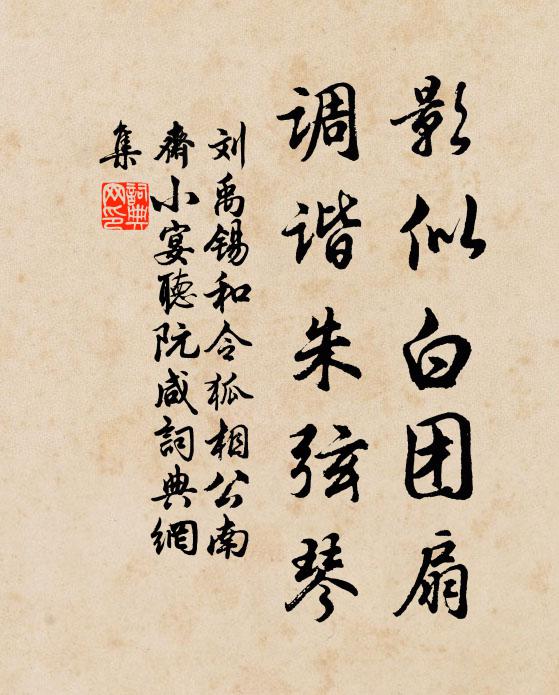 影似白团扇
调谐朱弦琴
刘禹锡和令狐相公南
斋小宴聽阮咸詞典網
集
詞典
网印